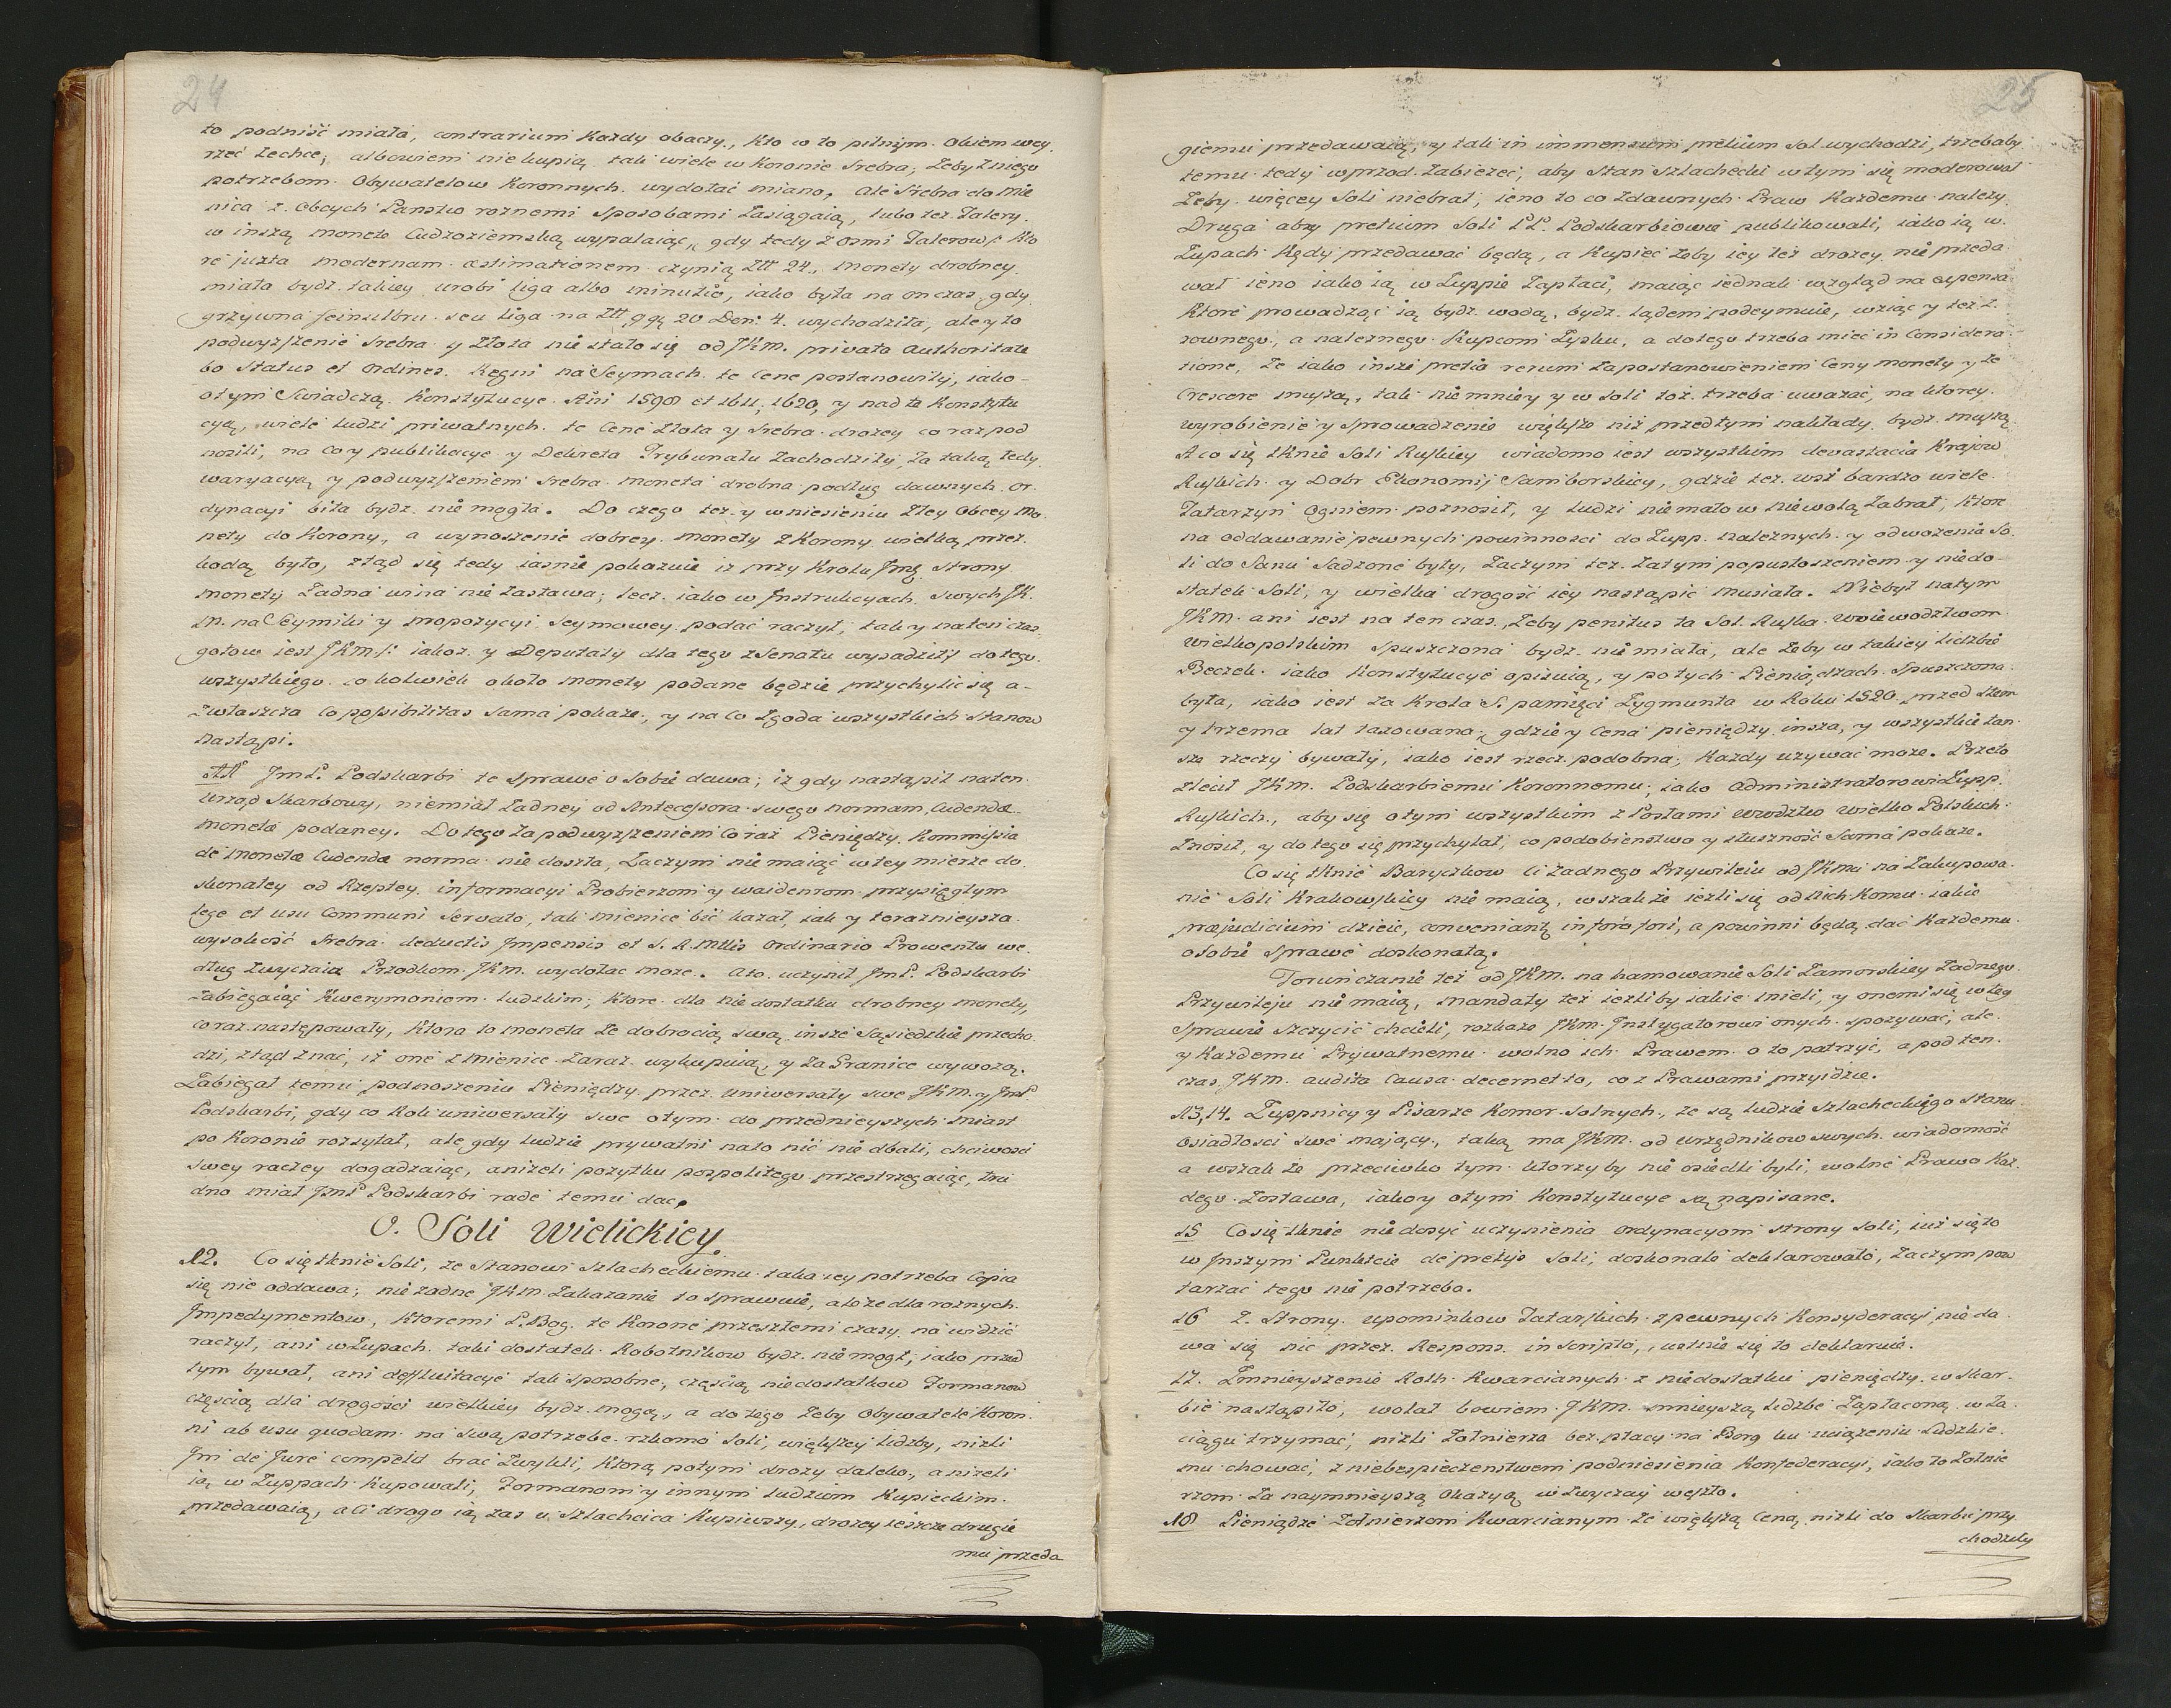 24
to podnisć miała, contrarium Kazdy obaczy, kto w to pilnym. Okiem wey.
rzeć zechce; albowiem nie kupią tak wiele w Koronie Srebra, Zeby z niego
potrzebom Obywatelow Koronnych. wydołać miano, Ale Srebro do Mie
nice z Obcych Panstw roznemi Sposobami Zasiągaią, lubo też Talery.
w inszą monetę Cudzoziemską wypalaiąc, gdy tedy z osmi Talerow, Kto
re juxta modernam æstimationem czynią Ztt 24., monety drobney.
miała bydz takiey urobi liga albo minutio, iako była na on czas gdy
grzywna seu liga na Ztt 9 g. 20 Den: 4. wychodziła, ale y to
podwyzszenie Srebra y Złota nie stało się od JKM. privata Authoritate
bo Status et Ordines. Regni na Seymach te Cene postanowiły, iako-
o tym Swiadczą Konstytucye Ani 1598 et 1611, 1620, y nad te Konstytu
cyą, wiele ludzi priwatnych te Cene Złota y Srebra drozey co raz pod
nosili, na co y publikacye y Dekreta Trybunału Zachodziły, Za taką tedy
waryacyą y podwyzszeniem Srebra moneta drobna podług dawnych or.
dynacyi bita bydz nie mogła. Do czego tez y wniesieniu Zley Obcey Mo
nety do Korony, a wynoszenie dobrey monety z Korony wielką przez.
kodą było, ztąd się tedy iasnie pokazuie iz przy Krolu Jmę strony
monety Zadna wina nie Zastawa; lecz iako w Instrukcyach Swych JK.
M. na Seymiki y propozycyi Seymowey podać raczył, tak y na ten czas
gotow iest JKM: iakoz y Deputaty dla tego z Senatu wysadziły do tego.
wszystkiego cokolwiek około monety podane będzie przychylic się a-
zwłaszcza Co possibilitas sama pokaze, y na Co Zgoda wszystkich Stanow
nastąpi.
11 Jm P. Podskarbi te sprawę o Sobie dawa; iz gdy nastąpił na ten
Urząd Skarbowy, niemiał Zadney od Antecessora swego normam Cudendæ
monetæ podaney. Do tego Za podwyzszeniem Co raz Pieniędzy Kommissia
de Moneta Cudenda norma nie doszła, Zaczym nie maiąc w tey mierze do.
skonałey od Rzeptey informacyi Probierzom y waidenrom przysięgłym
lege et usu Communi Servato, tak mienice bić kazał, iak y teraznieysza.
wysokość Srebra deductis Impensis et S. R. Mttis Ordinario Prowentu we.
dług Zwyczaia Przodkom JKM. wydołac moze. A to uczynił Jm P. Podskarbi
Zabiegaiąc Kwerymoniom ludzkim; Ktore dla nie dostatku drobney monety,
co raz następowały, Ktora to moneta Ze dobrocią swą insze Sąsiedzkie przecho
dzi, ztąd znać, iż one z mienice Zaraz wykupuią, y Za Granice wywozą.
Zabiegał temu podnoszeniu Pieniędzy przez uniwersały swe JKM. y Jm P.
Podskarbi, gdy co Rok uniwersały swe o tym do przednieyszych miast
po Koronie rozsyłał, ale gdy ludzie prywatni na to nić nie dbali, chciwosci
swey raczey dogadzaiąc, anizeli pozytku pospolitego przestrzegaiąc, tru
dno miał Jm P Podskarbi rade temu dac.
O. Soli Wielickiey
12. Co się tknie Soli, ze Stanowi Szlacheckiemu taka iey potrzeba Copia
się nie oddawa; nie zadne JKM. Zakazanie to sprawuie, ale ze dla roznych.
Impedymentow, Ktoremi P. Bog. te Korone przeszłemi czasy na widzić
raczył; ani w Zupach taki dostatek Robotnikow bydz nie mogł, iako przed
tym bywał, ani defluitacye tak sposobne, częscią niedostatkow Formanow
częscią dla drogości wielkiey bydz mogą, a do tego Zeby Obywatele Koron.
ni ab usu quodam na swą potrzebe rzkomo Soli, większey liczby, nizli
Im de Jure competit brać Zwykli, Ktorą potym drozy daleko, a nizeli
ią w Zuppach Kupowali, Formanom y innym ludziom Kupieckim.
przedawaią, a ći drogo ią zas u Szlachcica Kupiwszy, drozey ieszcze drugie
mu przeda
25
giemu przedawaią, y tak in immensum pretium Sol wychodzi, trzebaby
temu tedy wprzod Zabiezec, aby Stan Szlachecki w tym się moderował
Zeby więcey Soli niebrał, ieno to co z dawnych Praw Kazdemu nalezy.
Druga aby pretium Soli P.P. Podskarbiowie publikowali, iako ią w.
Zupach Kędy przedawać będą, a Kupiec Zeby iey też drozey nie przeda
wał ieno iako ią w Zuppie Zapłaci, maiąc iednak wzgląd na expensa
Ktore prowadząc ią bydz wodą, bydz lądem podeymuie, wziąc y też z.
rownego, a naleznego Kupcom Zysku, a do tego trzeba mieć in Considera-
tione, Ze iako insze pretia rerum Za postanowieniem Ceny monety y te
Crescere muszą, tak nie mniey y w Soli toż trzeba uwazać, na ktorey.
wyrobienie y Sprowadzenie większe niż przedtym nakłady bydz muszą
A co się tknie Soli Ruskiey wiadomo iest wszystkim devastacia Krajow
Ruskich y Dobr Ekonomij Samborskiey, gdzie tez wsi bardzo wiele.
Tatarzyn Ogniem poznosił, y ludzi nie mało w niewolą Zabrał, Ktore
na oddawanie pewnych powinnosci do Zupp naleznych y odwozenia So.
li do Sanu Sadzone były, Zaczym tez Za tym popustoszeniem y niedo-
statek Soli, y wielka drogość iey nastąpic musiała. Niebył na tym
JKM. ani iest na ten czas, Zeby penitus ta Sol Ruska woiewodztwom
wielkopolskim spuszczona bydz nie miała, ale Zeby w takiey liczbie
Beczek iako Konstytucye opisuią, y po tych Pieniądzach Spuszczona
była, iako iest Za Krola S. pamięci Zygmunta w Roku 1520. przed stem
y trzema lat taxowana, gdzie y Cena pieniędzy insza, y wszystkie tan
sze rzeczy bywały, iako iest rzecz podobna, Kazdy uzywać moze. Przeto
zlecił JKM. Podskarbiemu Koronnemu, iako Administratorowi Zupp.
Ruskich., aby się o tym wszystkim z Posłami Wwdztw wielko Polskich.
Znosił, y do tego się przychylał, co podobienstwo y słuszność Sama pokaze.
Co się tknie Baryczkow Ci Zadnego Przywileiu od JKmci na Zakupowa.
nie Soli Krakowskiey nie maią, wszak ze iezli się od nich Komu iakie
præjudicium dzieie, conveniant in foro fori, a powinni będą dać Kazdemu
o Sobie Sprawę doskonałą.
Torunczanie też od JKM. na hamowanie Soli Zamorskiey Zadnego.
Przywileju nie maią, mandaty też iezliby iakie mieli, y onemi się w tey
Sprawie Szczycić chcieli, rozkaze JKM. Instygatorowi onych pozywać, ale.
y Kazdemu Prywatnemu wolno ich Prawem o to patrzyć, a pod ten.
czas JKM. audita Causa decernet to, co z Prawami przyidzie.
13, 14. Zuppnicy y Pisarze Komor Solnych, ze są ludzie Szlacheckiego Stanu.
Osiadłosci swe mający, taką ma JKM. od urzędnikow swych wiadomość
a wszak że przeciwko tym ktorzy by nie osiedli byli, wolne Prawo Kaz.
dego Zostawa, iako y o tym Konstytucye są napisane.
15 Co się tknie nie dosyć uczynienia Ordynacyom strony Soli, iuż się to
w Inszym Punkcie de pretijs Soli, doskonale deklarowało, Zaczym pow
tarzać tego nie potrzeba.
16 Z. Strony. upominkow Tatarskich z pewnych Konsyderacyi, nie da.
wa się nic przez Respons in scripto, ustnie się to deklaruie.
17. Zmnieyszenie Roth Kwarcianych z niedostatku pieniędzy w Skar-
bie nastąpiło, wolał bowiem JKM. mnieyszą liczbe Zapłaconą w Za.
ciągu trzymać, nizli Zołnierza bez płacy na Borg ku uciązeniu ludzkie.
mu chować, z niebespieczenstwem podniesienia Konfederacyi, iako to Zołnie
rzom Za naymnieyszą Okazyą w Zwyczay weszło.
18 Pieniądze Zołnierzom Kwarcianym Ze większą Ceną nizli do Skarbu przy
chodziły